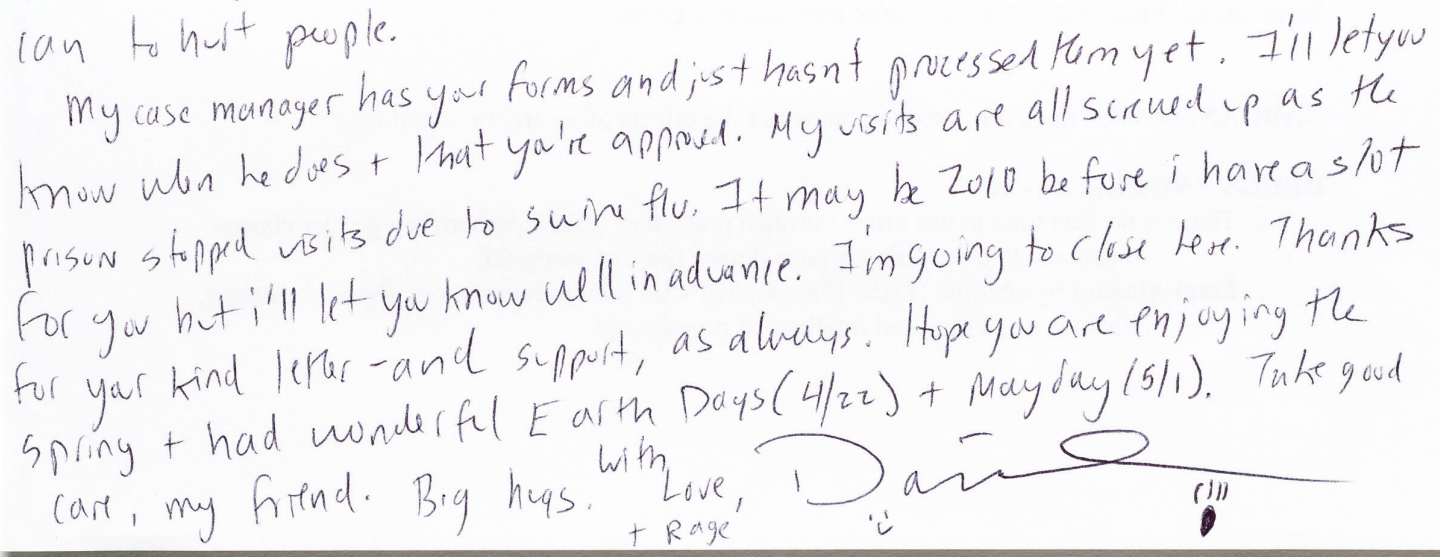 can to hurt people.
My case manager has your forms and just hasn't processed them yet. I'll let you
know when he does + that you're approved. My visits are all screwed up as the
prison stopped visits due to swine flu. It may be 2010 before i have a slot
for you but i'll let you know well in advance. I'm going to close here. Thanks
for your kind letter - and support, as always. Hope you are enjoying the
spring + had wonderful Earth Days (4/22) + Mayday (5/1). Take good
care, my friend. Big hugs. With Love,
+ Rage